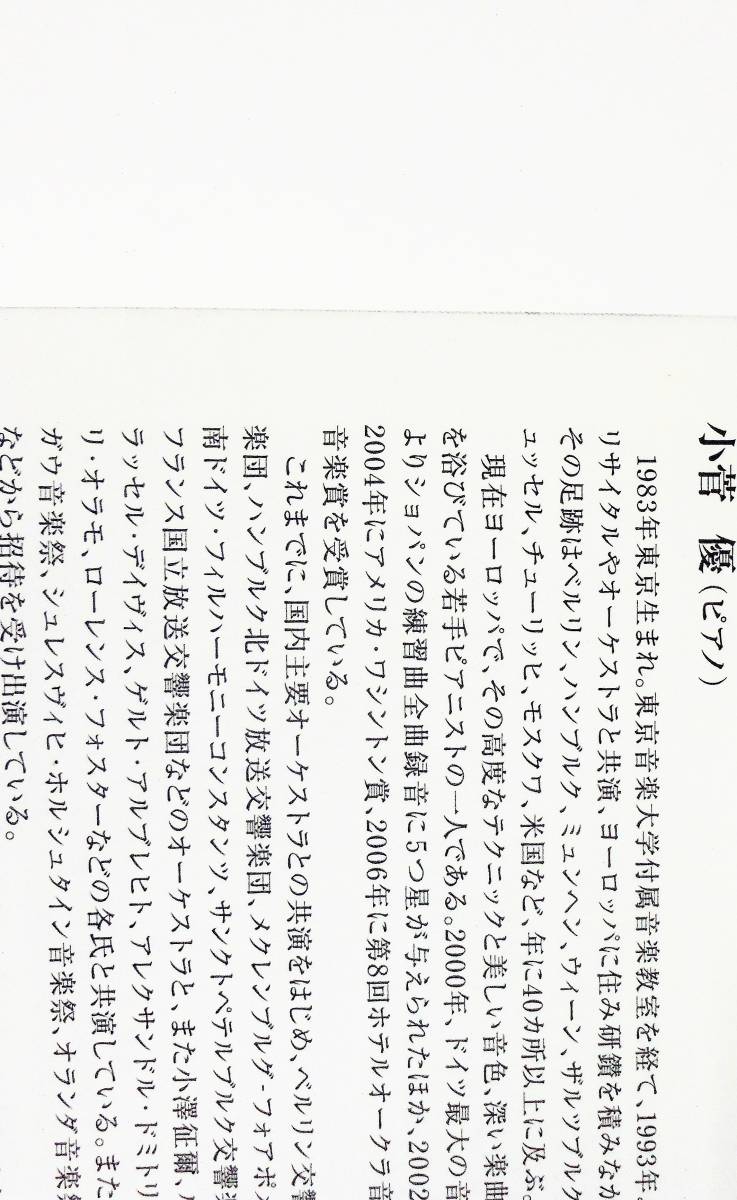 小菅 優(ピアノ)
1983年東京生まれ。東京音楽大学付属音楽教室を経て、1993年
リサイタルやオーケストラと共演、ヨーロッパに住み研鑽を積みなが
その足跡はベルリン、ハンブルク、ミュンヘン、ウィーン、ザルツブルク
ュッセル、チューリッヒ、モスクワ、米国など、年に40カ所以上に及ぶ。
現在ヨーロッパで、その高度なテクニックと美しい音色、深い楽曲
を浴びている若手ピアニストの一人である。2000年、ドイツ最大の音
よりショパンの練習曲全曲録音に5つ星が与えられたほか、2002
2004年にアメリカ・ワシントン賞、2006年に第8回ホテルオークラ音
音楽賞を受賞している。
これまでに、国内主要オーケストラとの共演をはじめ、ベルリン交響
楽団、ハンブルク北ドイツ放送交響楽団、メクレンブルグ-フォアポメ
南ドイツ・フィルハーモニーコンスタンツ、サンクトペテルブルク交響
フランス国立放送交響楽団などのオーケストラと、また小澤征爾、
ラッセル・デイヴィス、ゲルト・アルブレヒト、アレクサンドル・ドミトリ
リ・オラモ、ローレンス・フォスターなどの各氏と共演している。また
ガウ音楽祭、シュレスヴィヒ・ホルシュタイン音楽祭、オランダ音楽祭
などから招待を受け出演している。